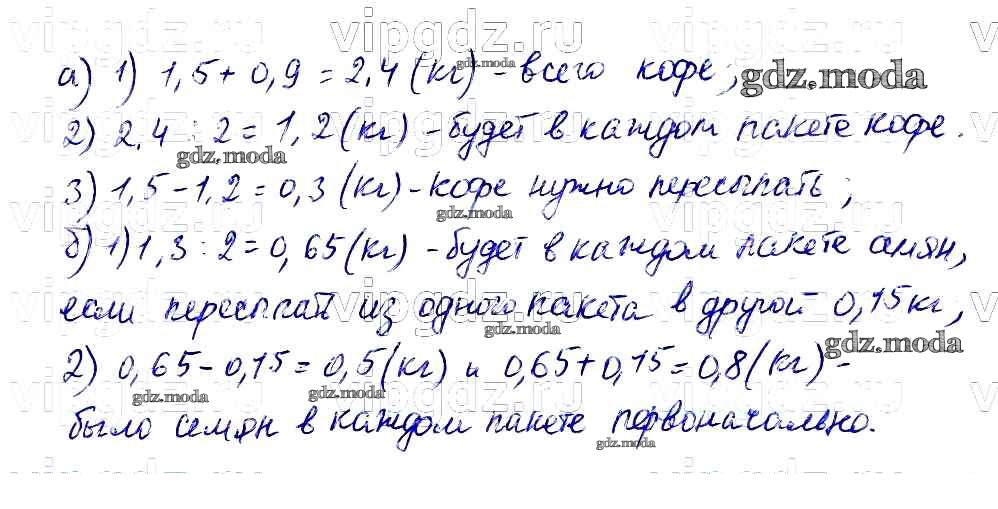 vipgdz.ru vipgdz.ru vipgdz.ru vipgdz.ru
а) 1) 1,5+0,9=2,4(кг)-всего кофе;
gdz.moda gdz.moda
2) 2,4:2=1,2(кг)-будет в каждом пакете кофе.
gdz.moda
3) 1,5-1,2=0,3(кг)-кофе нужно пересыпать;
gdz.moda
б) 1) 1,3:2=0,65(кг)-будет в каждом пакете семян,
если пересыпать из одного пакета в другой 0,15кг,
gdz.moda gdz.moda
2) 0,65-0,15=0,5(кг) и 0,65+0,15=0,8(кг)-
gdz.moda gdz.moda
было семян в каждом пакете первоначально.
gdz.moda
vipgdz.ru vipgdz.ru vipgdz.ru vipgdz.ru